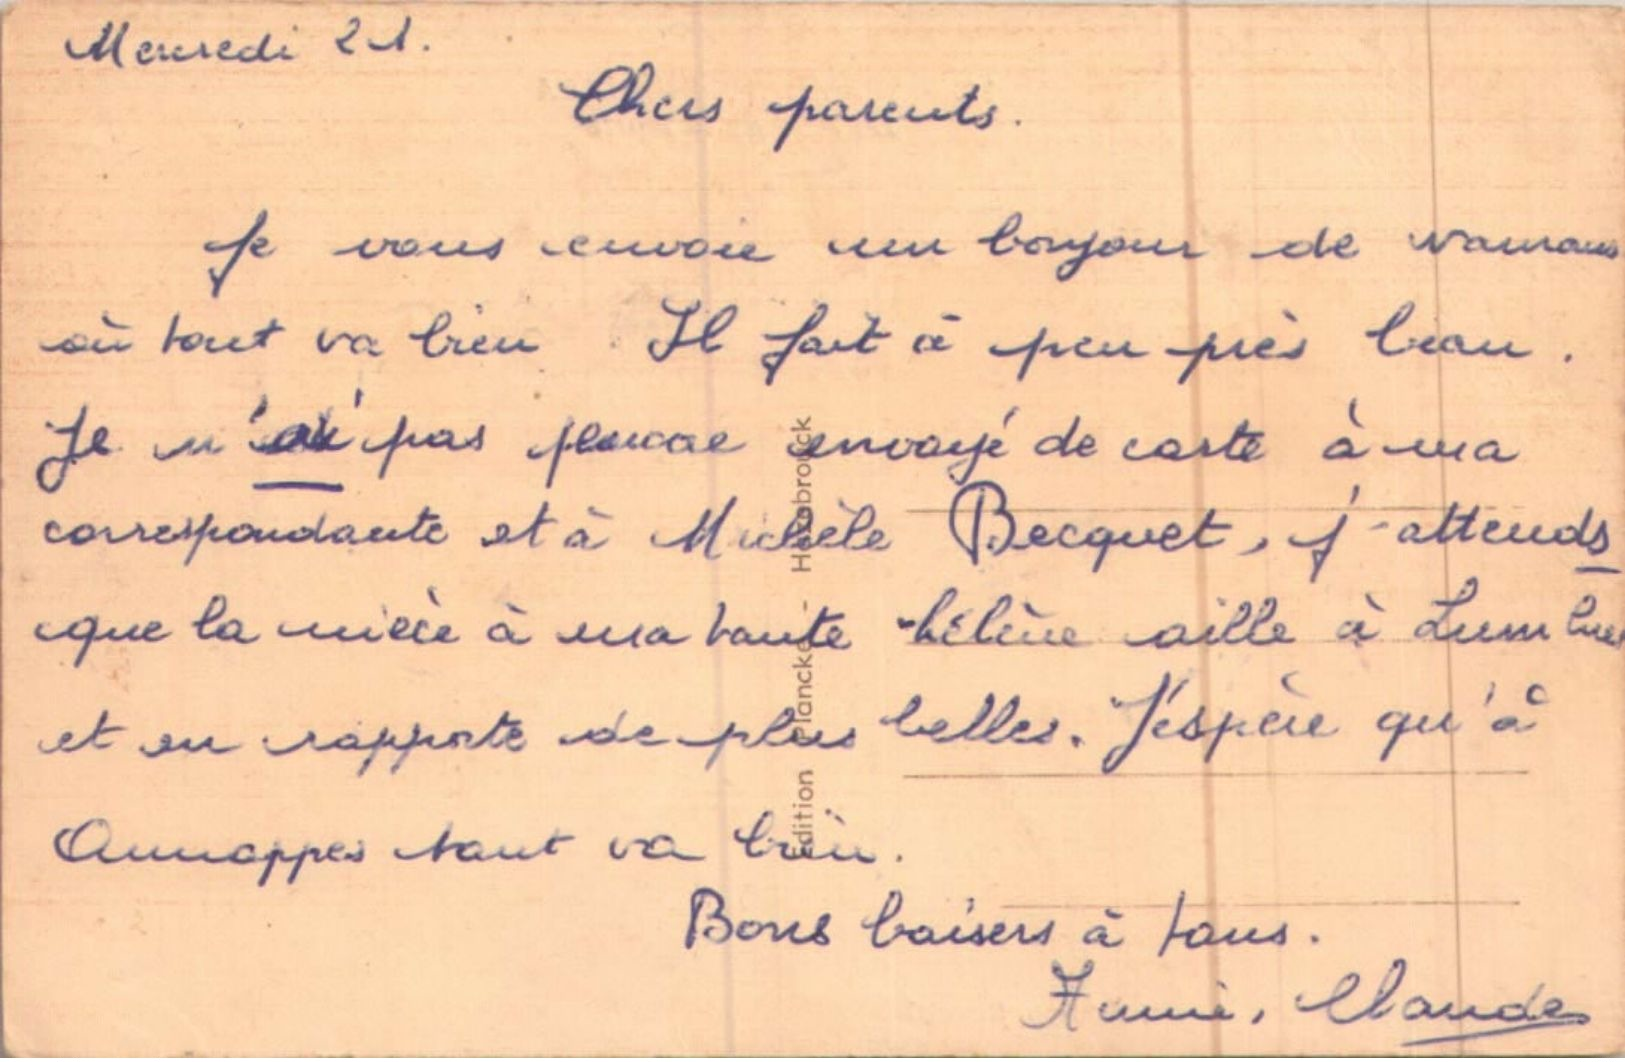 Mercredi 21.
Chers parents.
Je vous envoie un bonjour de
où tout va bien. Il fait à peu près beau.
Je n'ai pas encore envoyé de carte à ma
correspondante et à Michèle Becquet, j'attends
que la nièce à ma tante hélène aille à Lumbres
et en rapporte de plus belles. J'espère qu'à
Annappes tout va bien.
Bons baisers à tous.
Annie, Claude
Edition Plancke - Hazebrouck